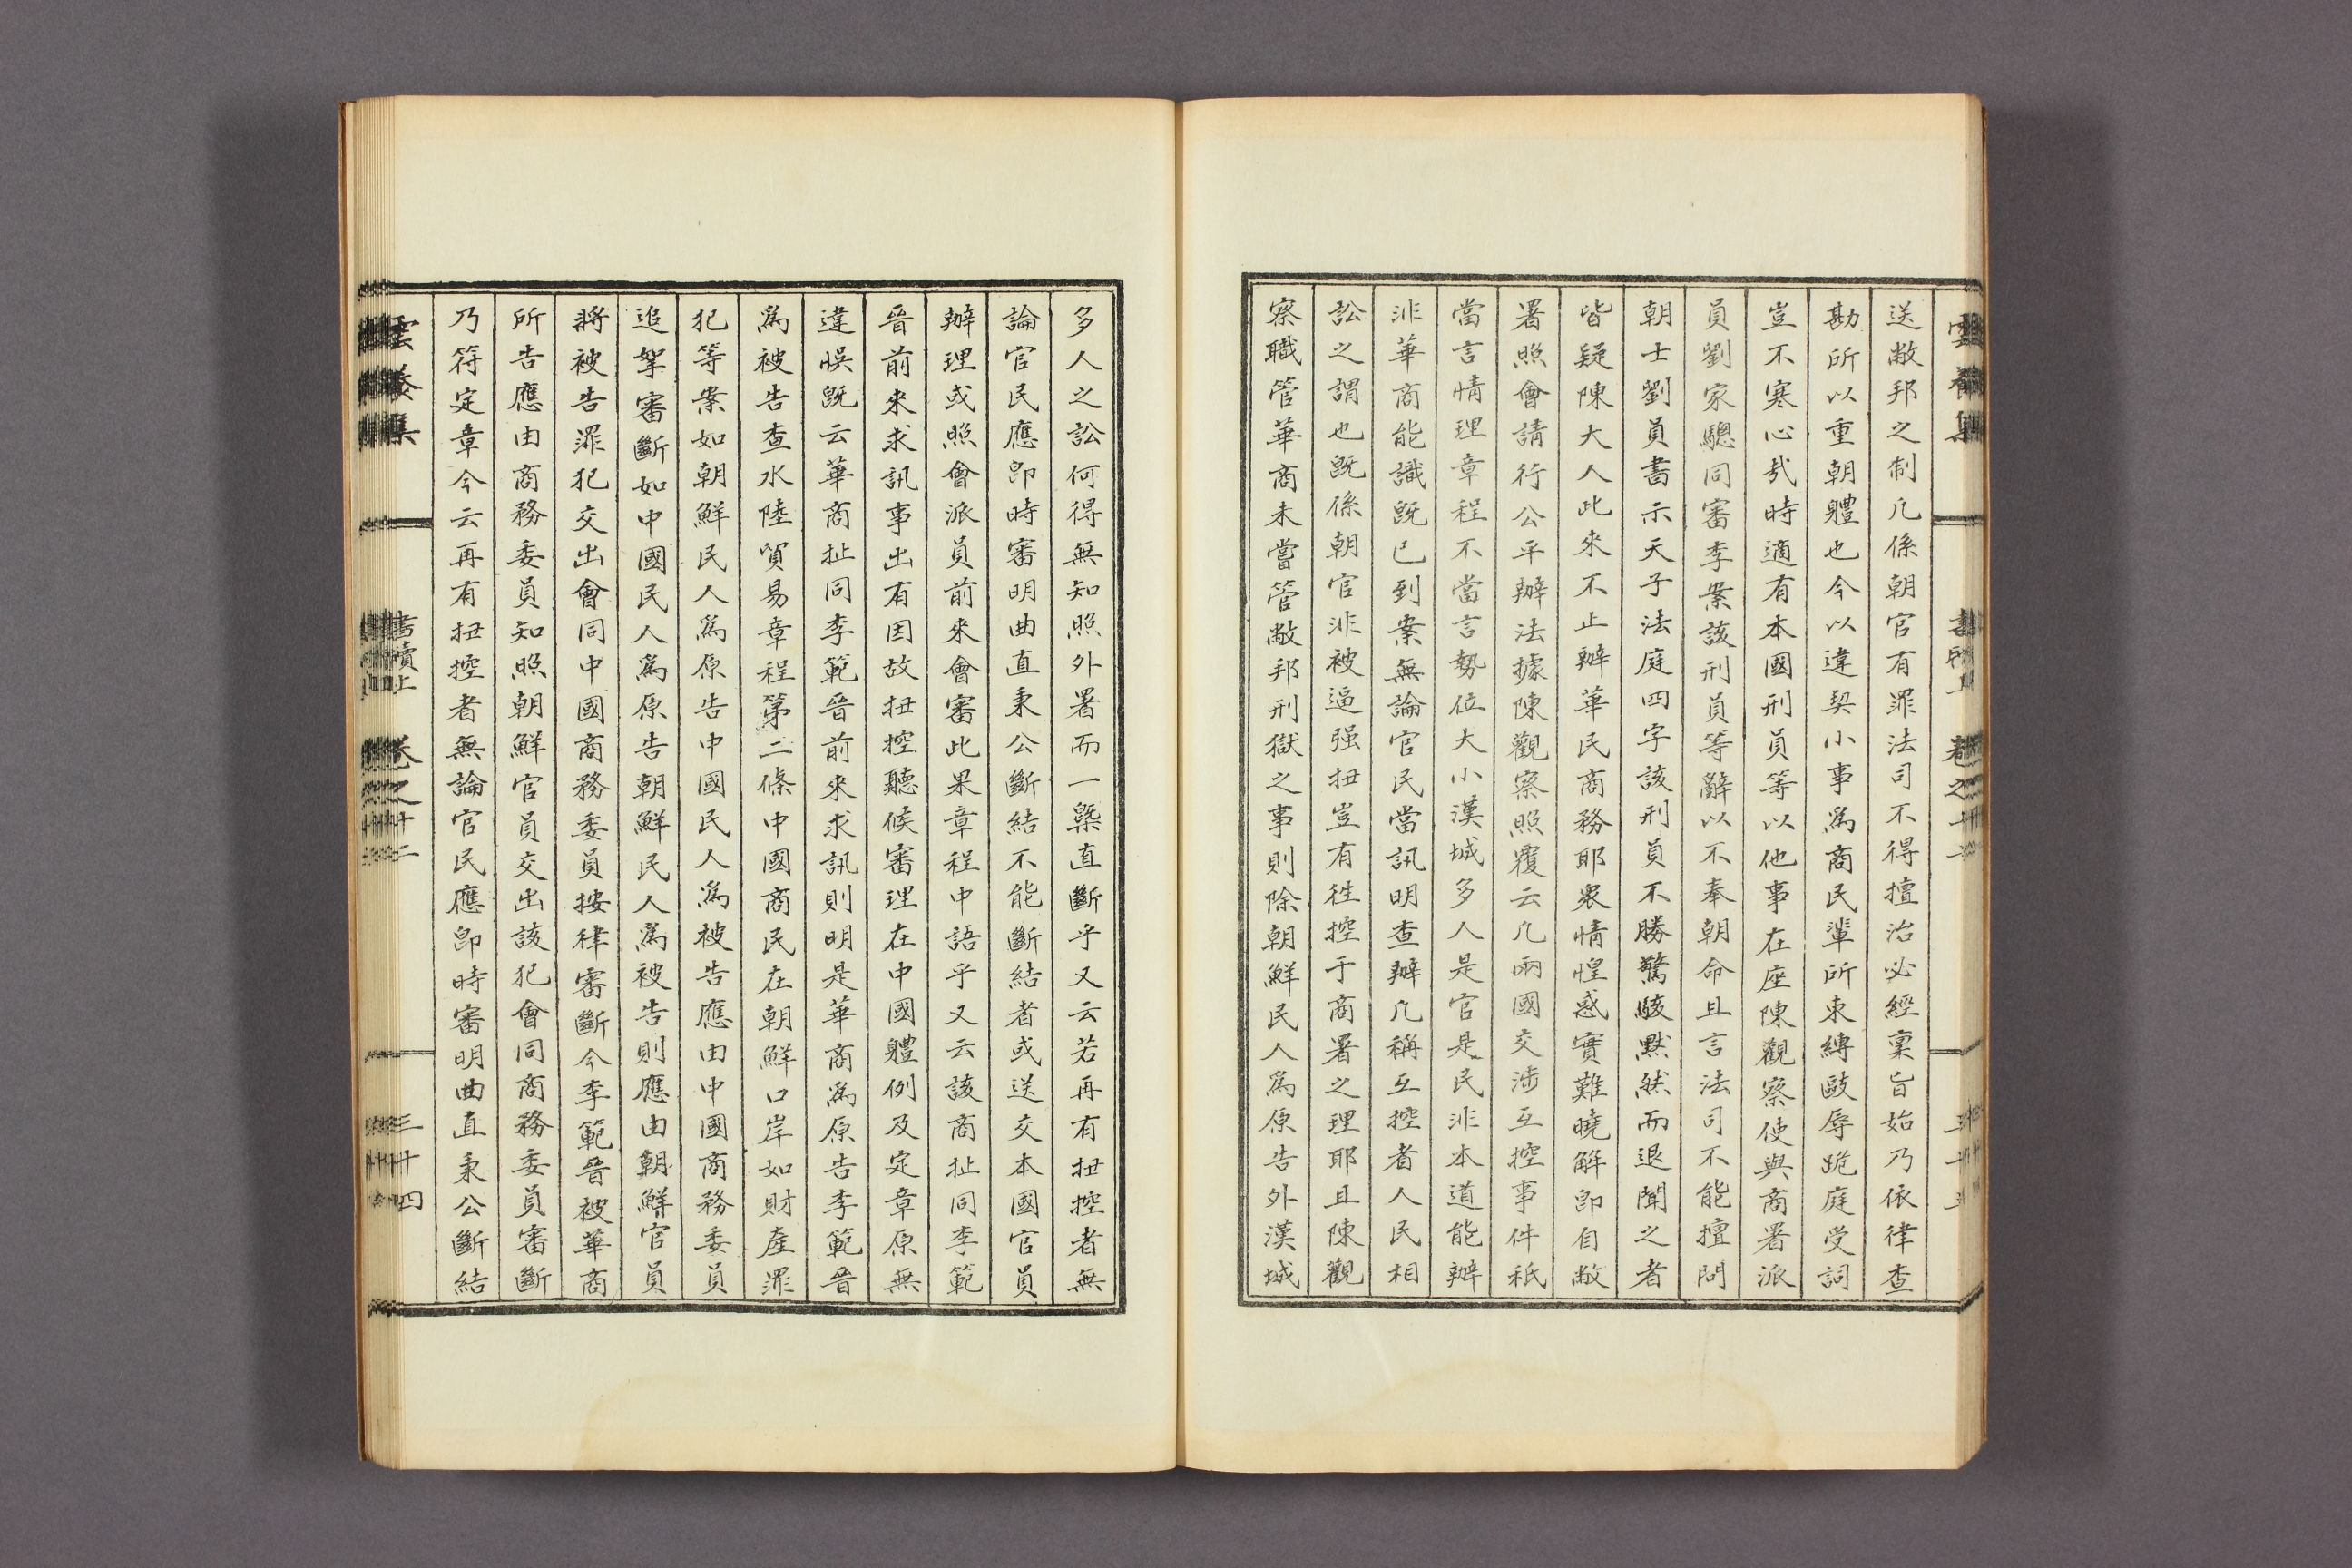 送敝邦之制凡係朝官有罪法司不得擅治必經稟旨始乃依律查
勘所以重朝體也今以違契小事爲商民輩所束縛敺辱跪庭受詞
豈不寒心哉時適有本國刑員等以他事在座陳觀察使與商署派
員劉家驄同審李案該刑員等辭以不奉朝命且言法司不能擅問
朝士劉員書示天子法庭四字該刑員不勝驚駭黙然而退聞之者
皆疑陳大人此來不止辦華民商務耶衆情惶惑實難曉解卽自敝
署照會請行公平辦法據陳觀察照覆云凡兩國交涉互控事件秖
當言情理章程不當言勢位大小漢城多人是官是民非本道能辦
非華商能識旣已到案無論官民當訊明查辦凡稱互控者人民相
訟之謂也旣係朝官非被逼强扭豈有徃控于商署之理耶且陳觀
察職管華商未嘗管敝邦刑獄之事則除朝鮮民人爲原告外漢城
多人之訟何得無知照外署而一槩直斷乎又云若再有扭控者無
論官民應卽時審明曲直秉公斷結不能斷結者或送交本國官員
辦理或照會派員前來會審此果章程中語乎又云該商扯同李範
晉前來求訊事出有因故扭控聽候審理在中國體例及定章原無
違悞旣云華商扯同李範晉前來求訊則明是華商爲原告李範晉
爲被告查水陸貿易章程第二條中國商民在朝鮮口岸如財産罪
犯等案如朝鮮民人爲原告中國民人爲被告應由中國商務委員
追拏審斷如中國民人爲原告朝鮮民人爲被告則應由朝鮮官員
將被告罪犯交出會同中國商務委員按律審斷今李範晉被華商
所告應由商務委員知照朝鮮官員交出該犯會同商務委員審斷
乃符定章今云再有扭控者無論官民應卽時審明曲直秉公斷結
雲養集 書牘上 卷之十二 三十四